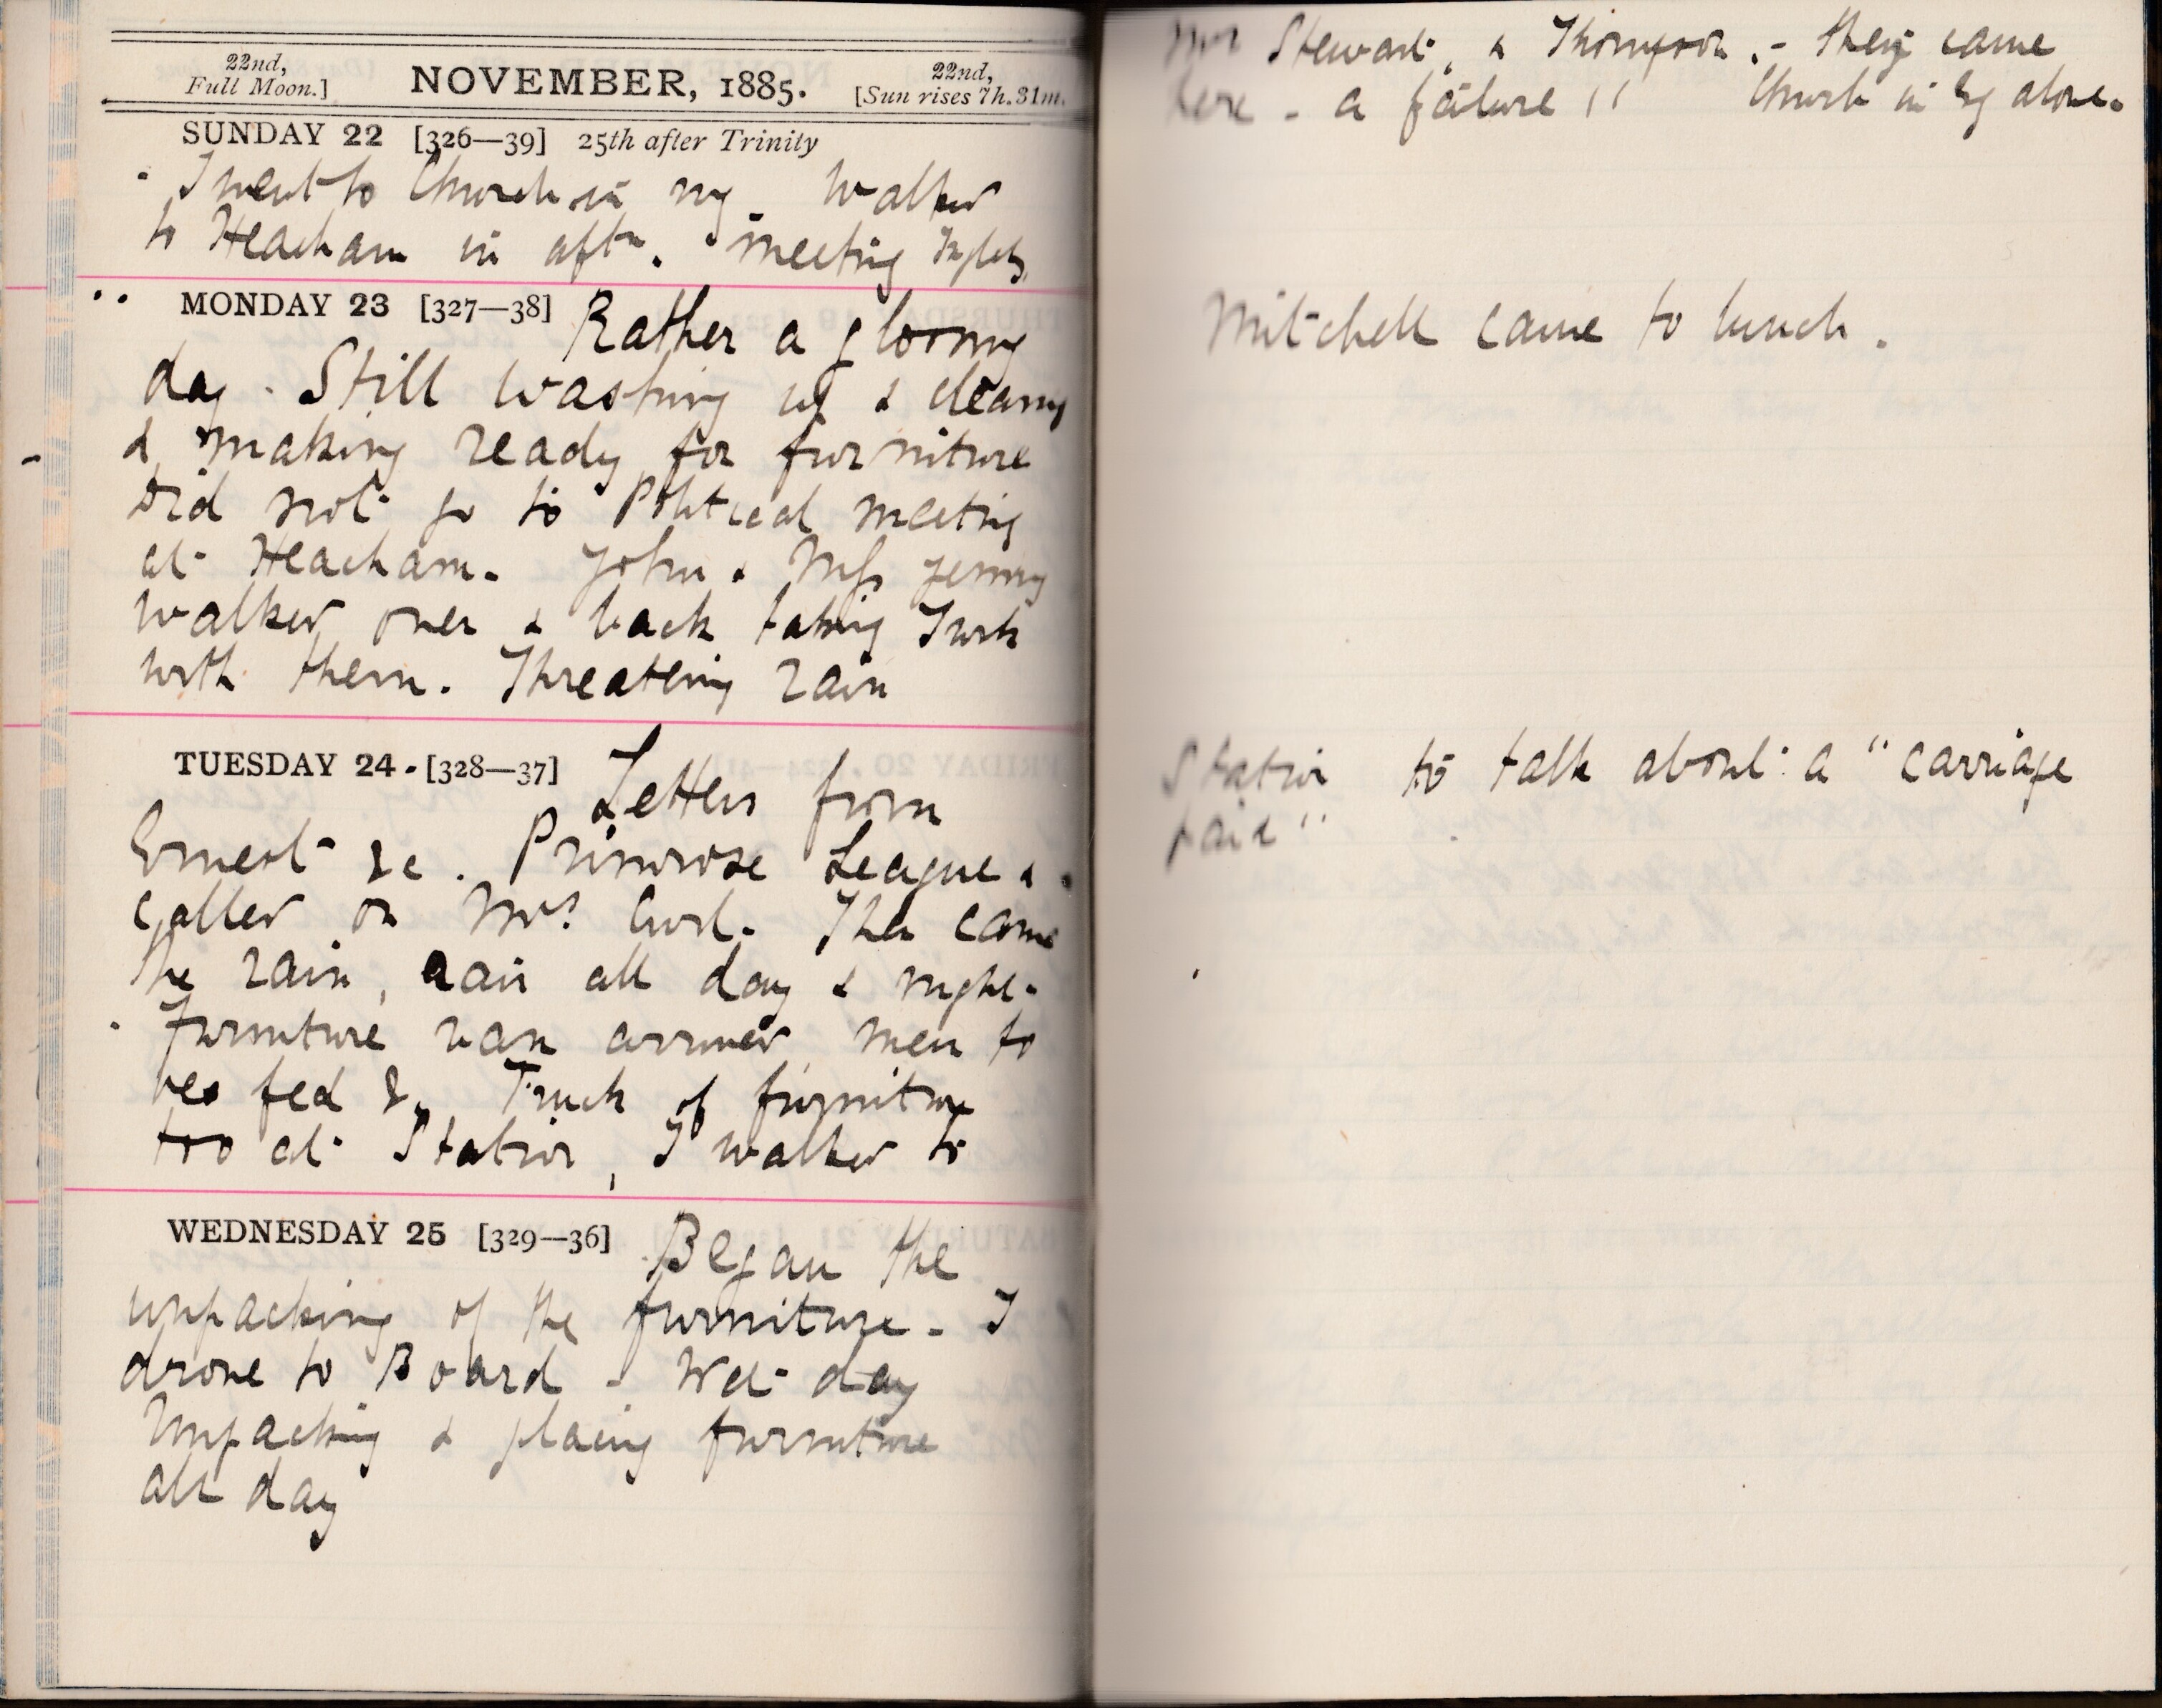 22nd,
Full Moon.]
NOVEMBER, 1885.
22nd,
[Sun rises 7h.31m.
SUNDAY 22 [326—39] 25th after Trinity
I went to Church in mg. Walked
to Heacham in aftn. meeting
MONDAY 23 [327—38] Rather a gloomy
day. Still washing up & cleaning
& making ready for furniture
Did not go to Political meeting
at Heacham. John & Miss Jenny
walked over & back taking Turk
with them. Threatening rain
TUESDAY 24. [328—37] Letters from
Ernest &c. Primrose League &
called on Mrs Curl. Then came
the rain, rain all day & night.
Furniture van arrived, men to
be fed &c. Truck of furniture
too at Station, I walked to
WEDNESDAY 25 [329—36] Began the
unpacking of the furniture - I
drove to Board - Wet day
Unpacking & placing furniture
all day
Stewart, & Thompson. - they came
here - a failure !! Church in Evg alone.
Mitchell came to lunch.
Station to talk about a "carriage
paid"